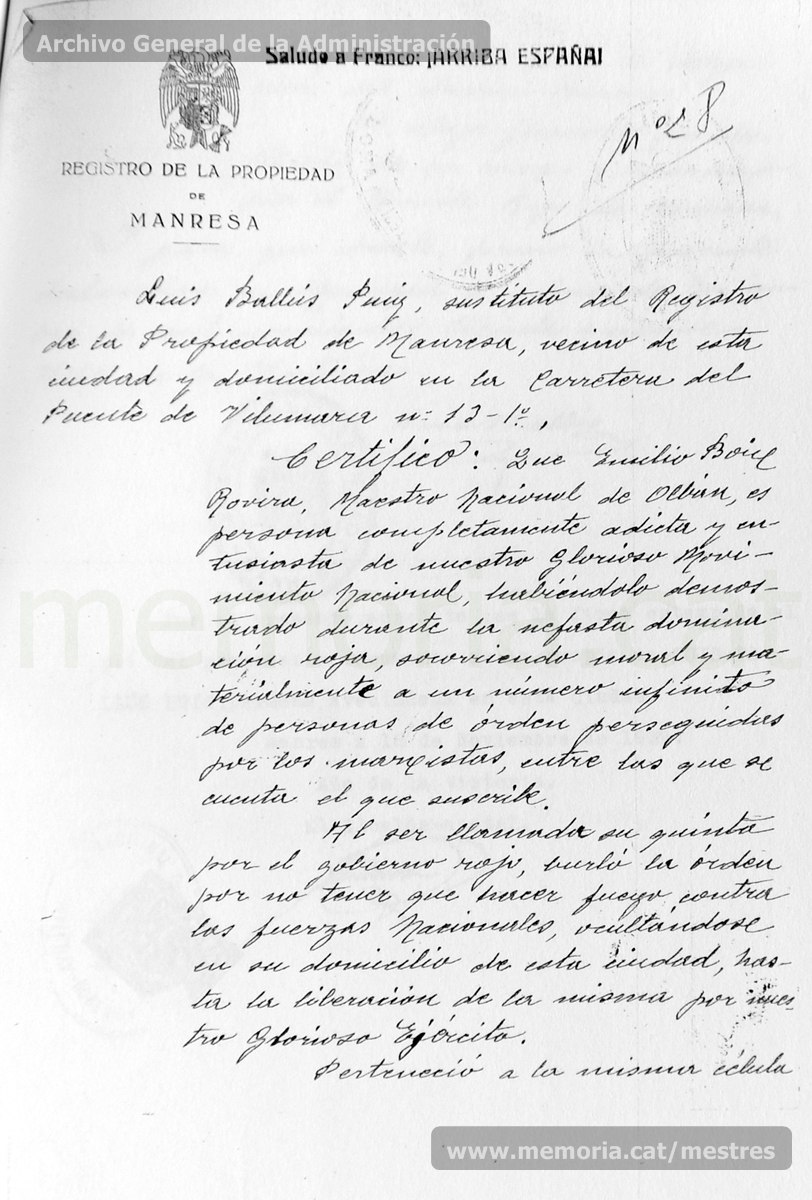 Archivo General de la Administración
Saludo a Franco: ¡ARRIBA ESPAÑA!
Nº 28
REGISTRO DE LA PROPIEDAD
DE
MANRESA
Luis Ballús Puig, sustituto del Registro
de la Propiedad de Manresa, vecino de esta
ciudad y domiciliado en la Carretera del
Puente de Vilumara nº 13-1º,
Certifico: Que Emilio Boix
Rovira, Maestro Nacional de Olbán, es
persona completamente adicta y en-
tusiasta de nuestro Glorioso Movi-
miento Nacional, habiéndolo demos-
trado durante la nefasta domina-
ción roja, socorriendo moral y ma-
terialmente a un número infinito
de personas de órden perseguidas
por los marxistas, entre las que se
cuenta el que suscribe.
Al ser llamada su quinta
por el gobierno rojo, burló la órden
por no tener que hacer fuego contra
las fuerzas Nacionales, ocultándose
en su domicilio de esta ciudad, has-
ta la liberación de la misma por nues-
tro Glorioso Ejército.
Perteneció a la misma célula
memoria.cat
www.memoria.cat/mestres